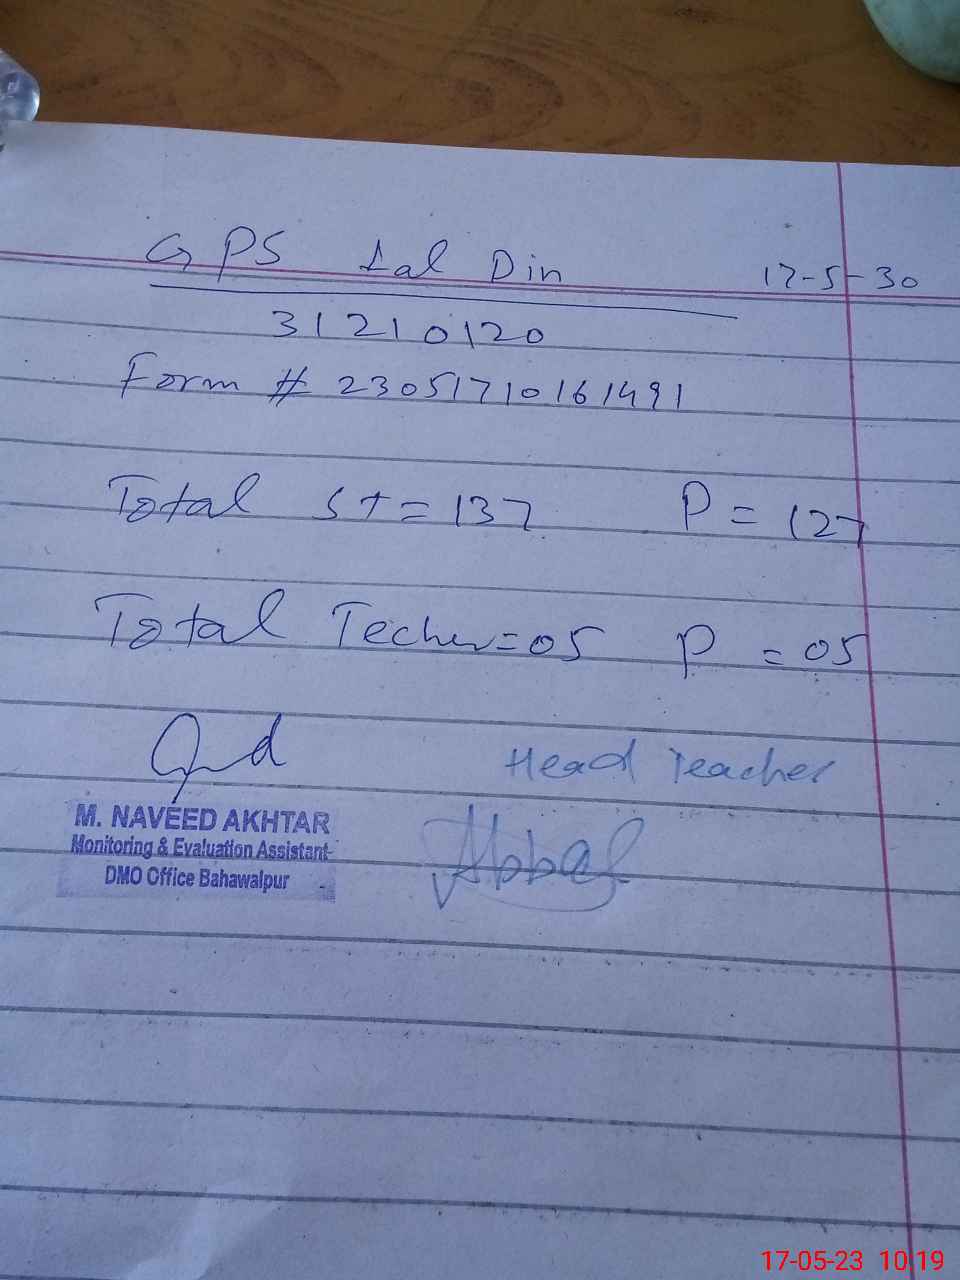 GPS Lal Din 17-5-30
31210120
Form # 23051710161491
Total St = 137 P = 127
Total Techer = 05 P = 05
Head Teacher
M. NAVEED AKHTAR
Monitoring & Evaluation Assistant
DMO Office Bahawalpur
17-05-23 10:19